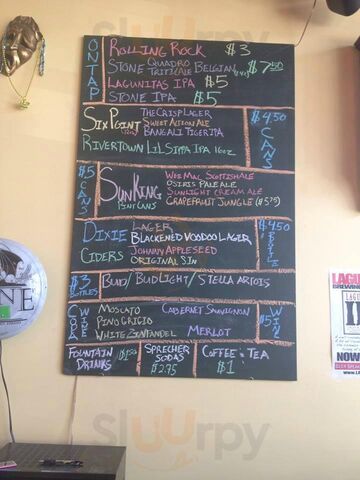 ON TAP
ROLLING ROCK $3
STONE QUADRO TRITICALE BELGIAN $7.50
LAGUNITAS IPA $5
STONE IPA $5
SIXPOINT
THE CRISP LAGER
SWEET ACTION ALE
BANGALI TIGER IPA
RIVERTOWN LIL SIPPA IPA 16oz
$4.50 CANS
$5 CANS
SUN KING
PINT CANS
WEE MAC SCOTTISH ALE
OSIRIS PALE ALE
SUNLIGHT CREAM ALE
GRAPEFRUIT JUNGLE ($5.75)
DIXIE LAGER
BLACKENED VOODOO LAGER
CIDERS JOHNNY APPLESEED
ORIGINAL SIN
$4.50 BTTLS
$3 BOTTLES
BUD/BUDLIGHT/STELLA ARTOIS
WINE
MOSCATO CABERNET SAUVIGNON
PINO GRIGIO
WHITE ZINFANDEL MERLOT
$5 WINE
FOUNTAIN DRINKS $1.50
SPRECHER SODAS $2.75
COFFEE & TEA $1
NE
LAGU
BREWING
NOW
Sluurpy